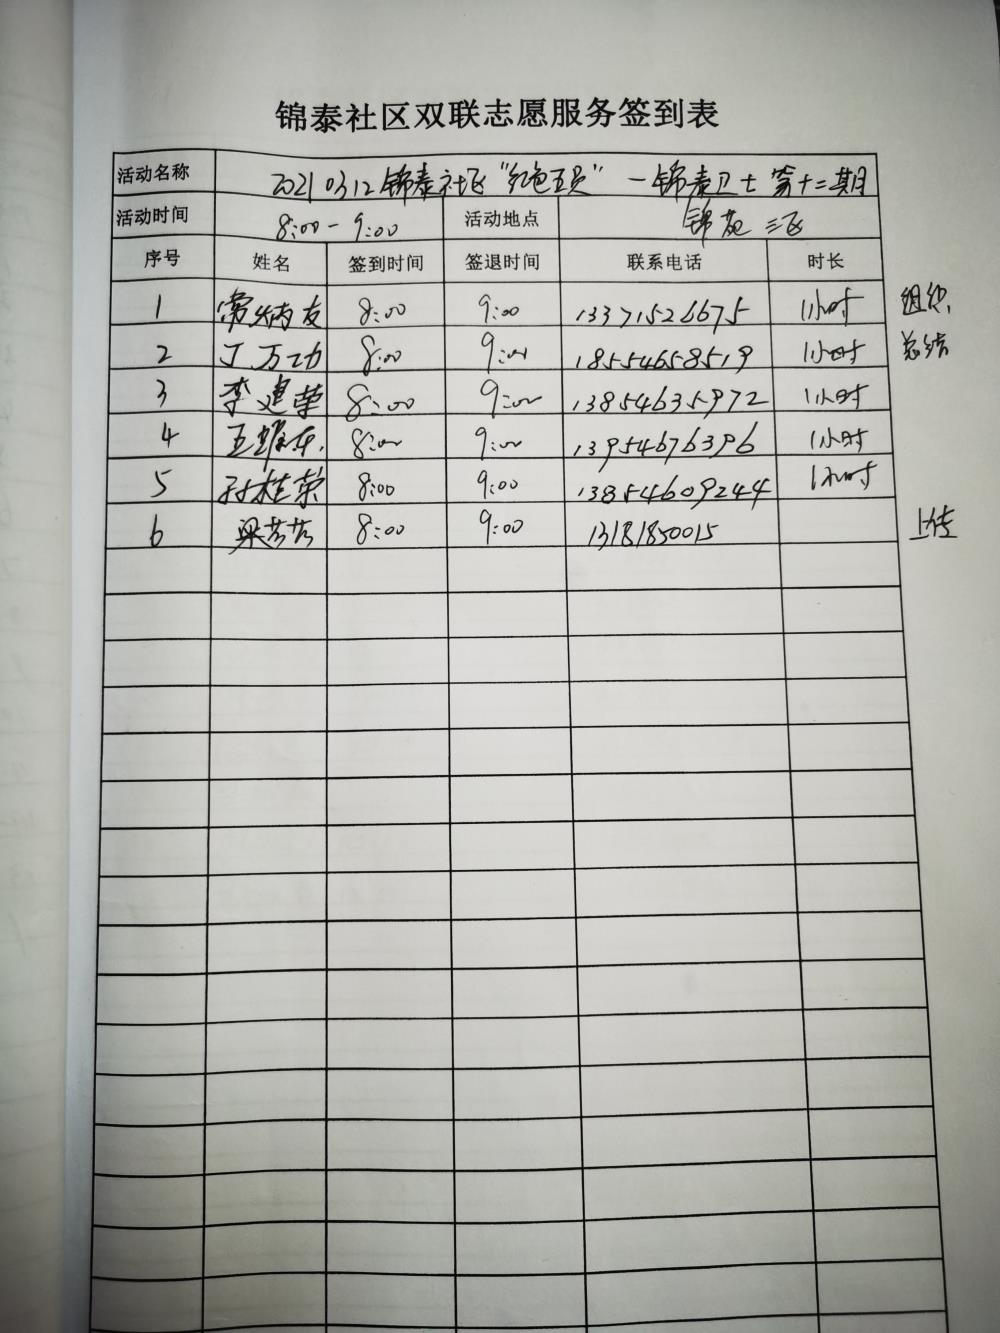 锦泰社区双联志愿服务签到表
活动名称 20210312锦泰社区"红色五员"一锦泰卫士第十二期
活动时间 8:00-9:00 活动地点 锦苑三区
序号 姓名 签到时间 签退时间 联系电话 时长
1 常炳友 8:00 9:00 13371526675 1小时 组织,
2 丁万功 8:00 9:00 18554658519 1小时 总结
3 李建荣 8:00 9:00 13854635972 1小时
4 8:00 9:00 13954676396 1小时
5 孙桂荣 8:00 9:00 13854609244 1小时
6 梁芳芳 8:00 9:00 13181850015 上传